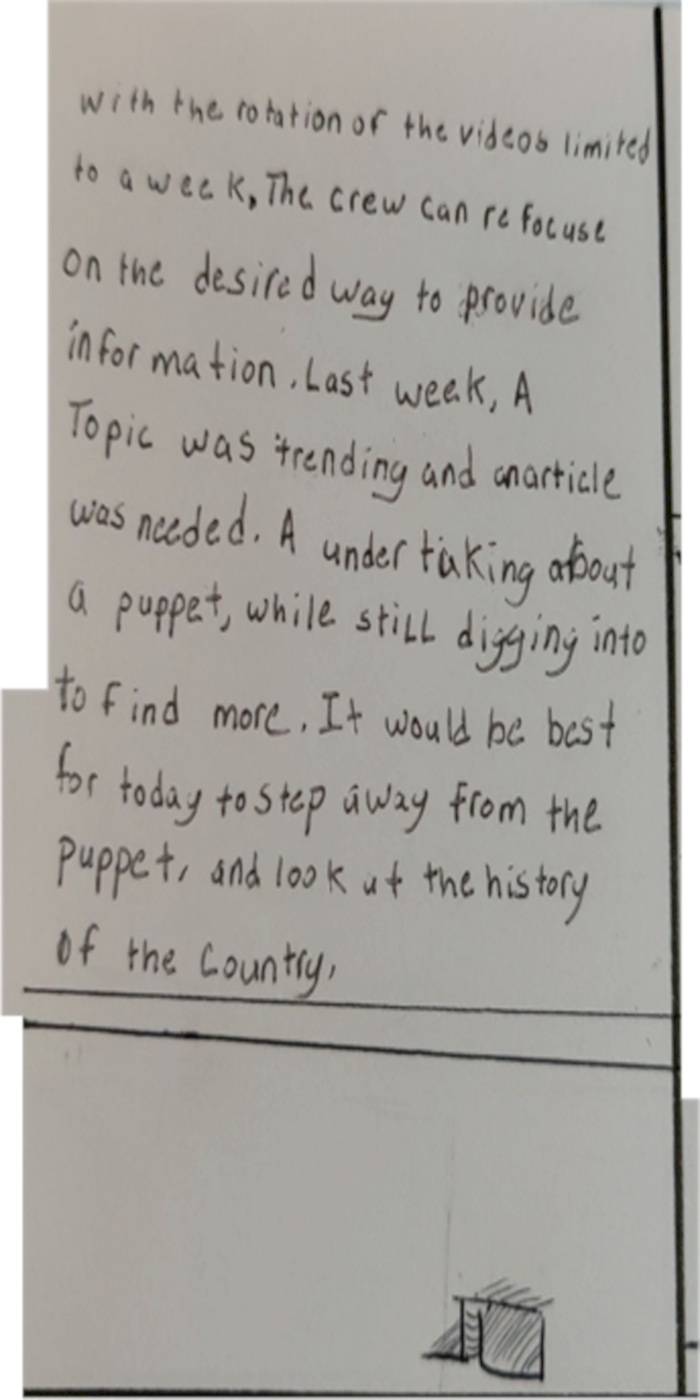 with the rotation of the videos limited
to a week, The crew can refocuse
on the desired way to provide
information. Last week, A
Topic was trending and anarticle
was needed. A undertaking about
a puppet, while still digging into
to find more. It would be best
for today to step away from the
puppet, and look at the history
of the Country,